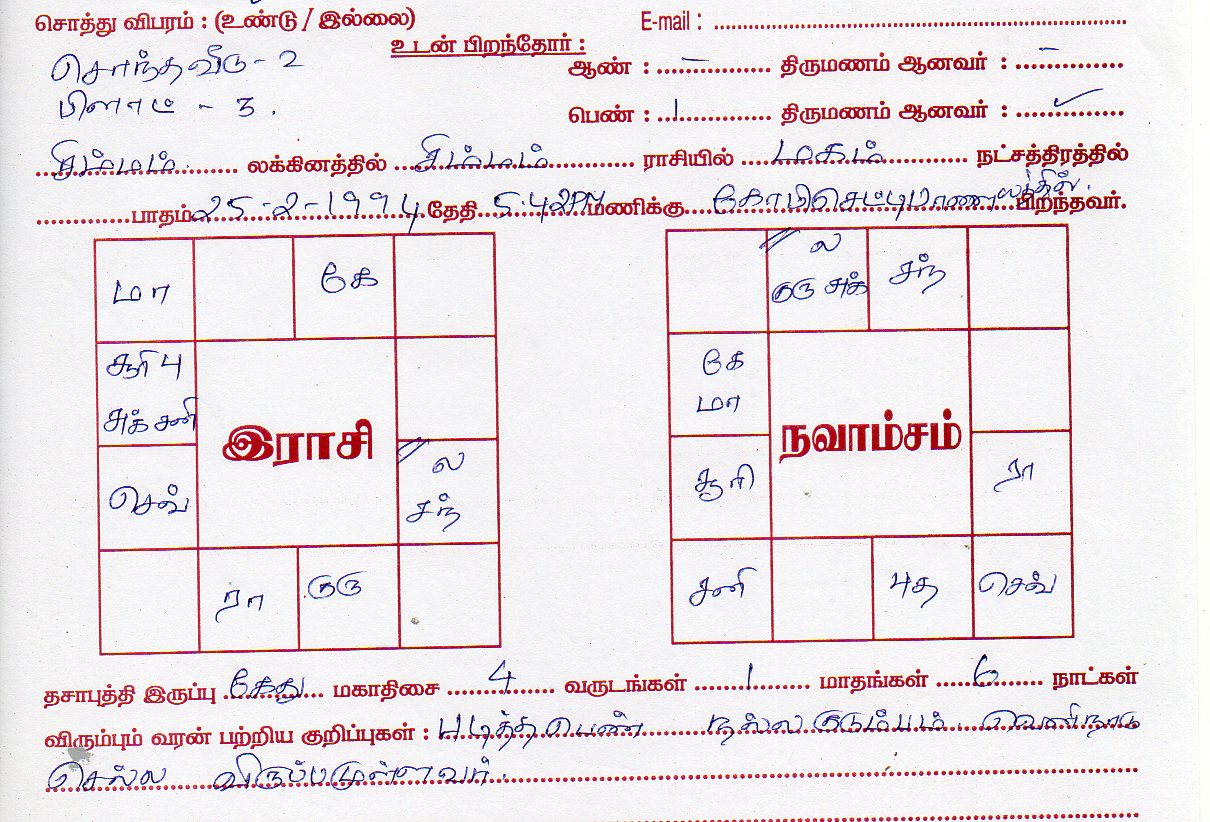 சொத்து விபரம் : (உண்டு / இல்லை) E-mail : 
உடன் பிறந்தோர் :
சொந்தவீடு - 2
ஆண் : – திருமணம் ஆனவர் : –
பிளாட் - 3.
பெண் : 1 திருமணம் ஆனவர் : ✓
சிம்மம் லக்கினத்தில் சிம்மம் ராசியில் மகம் நட்சத்திரத்தில்
பாதம் 25-2-1994 தேதி 5.42PM மணிக்கு பிறந்தவர்.
மா கே
சூரி பு
சுக் சனி
ல
சந்
செவ்
ரா குரு
இராசி
ல
குரு சுக் சந்
கே
மா
சூரி ரா
சனி புத செவ்
நவாம்சம்
தசாபுத்தி இருப்பு கேது மகாதிசை 4 வருடங்கள் 1 மாதங்கள் 6 நாட்கள்
விரும்பும் வரன் பற்றிய குறிப்புகள் : படித்த பெண் நல்ல குடும்பம் வெளிநாடு
செல்ல விருப்பமுள்ளவர்.